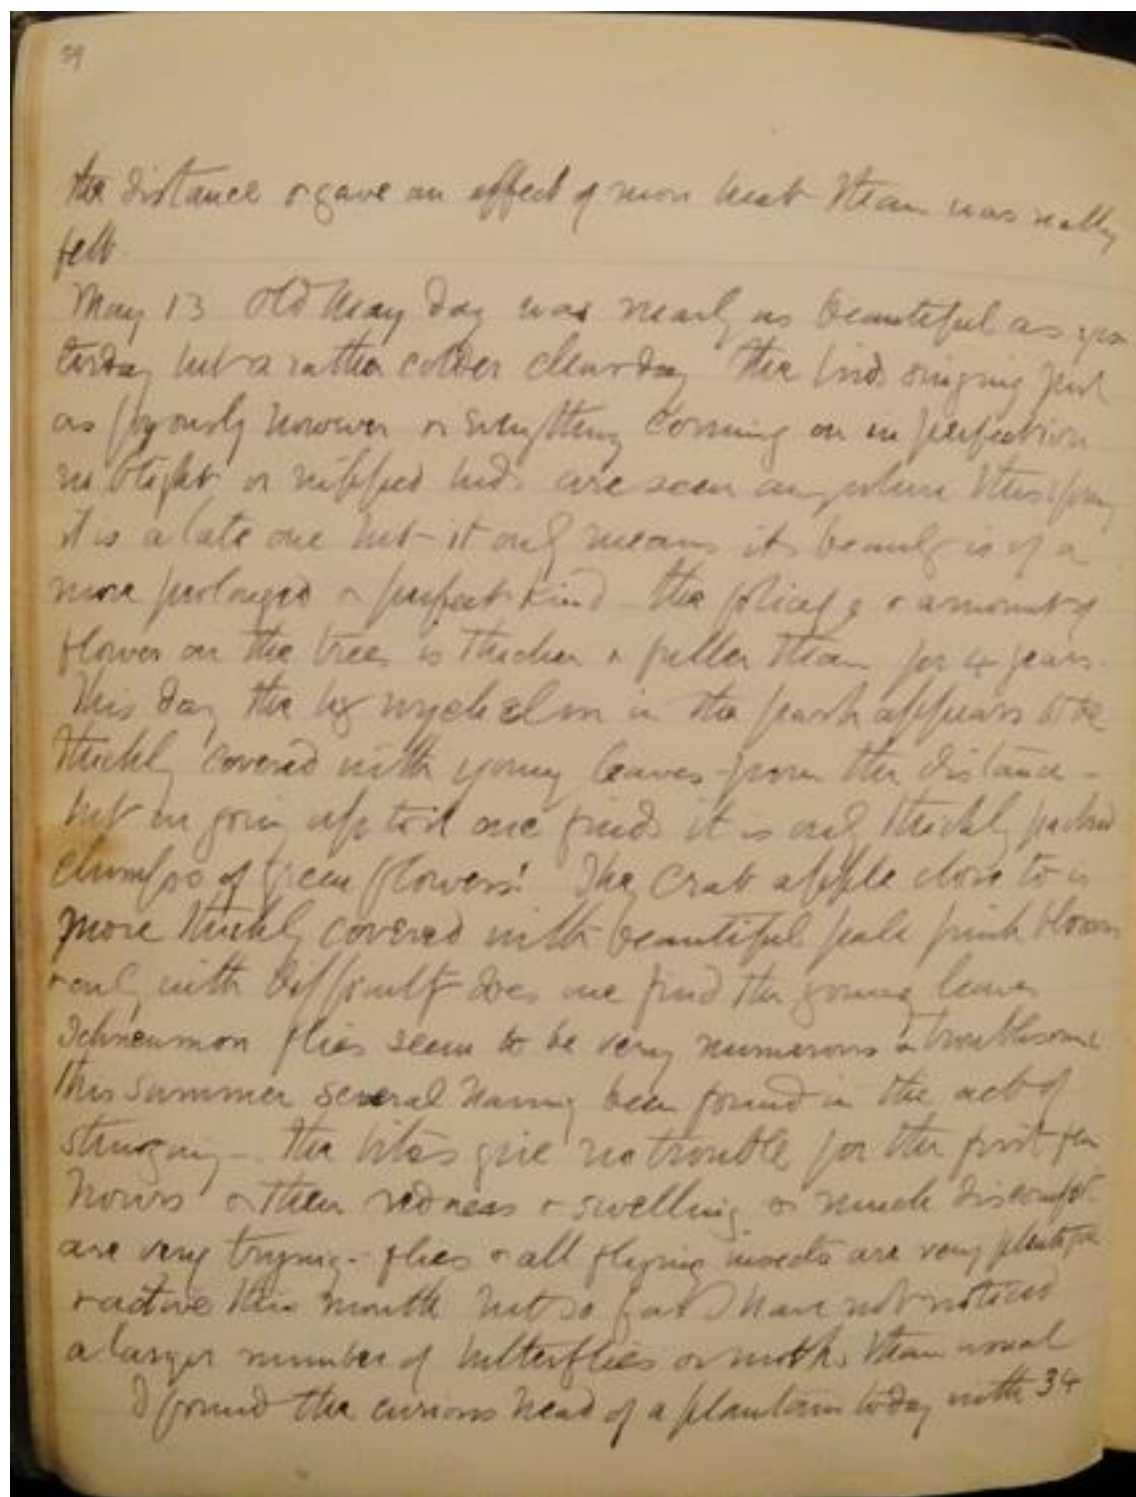 39
the distance & gave an effect of more heat than was really
felt.
May 13 Old May Day was nearly as beautiful as yes
terday but a rather colder clear day the birds singing just
as joyously however & everything coming on in perfection
no blight or nipped buds are seen anywhere this spring
it is a late one but it only means its beauty is of a
more prolonged & perfect kind the foliage & amount of
flower on the trees is thicker & fuller than for 4 years.
This day the big wych elm in the park appears to be
thickly covered with young leaves from the distance -
but on going up to it one finds it is only thickly packed
clumps of green flowers! The Crab apple close to is
more thickly covered with beautiful pale pink blossom
& only with difficulty does one find the young leaves
Ichneumon flies seem to be very numerous & troublesome
this summer several having been found in the act of
stinging - the bites give no trouble for the first few
hours & then redness & swelling & much discomfort
are very trying - flies & all flying insects are very plentiful
& active this month but so far I have not noticed
a larger number of butterflies or moths than usual
I found the curious head of a plantain today with 34